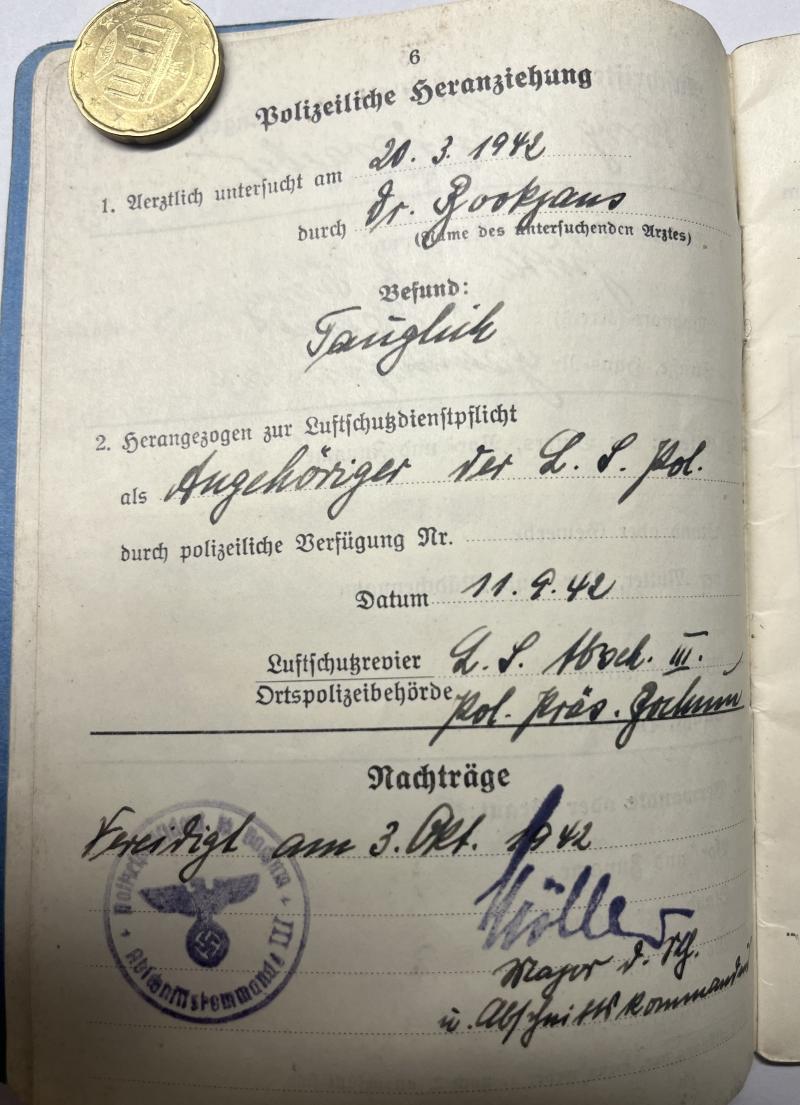 6
Polizeiliche Heranziehung
1. Aerztlich untersucht am 20. 3. 1942
durch Dr.
(Name des untersuchenden Arztes)
Befund:
Tauglich
2. Herangezogen zur Luftschutzdienstpflicht
als Angehöriger der L. S. Pol.
durch polizeiliche Verfügung Nr.
Datum 11. 9. 42
Luftschutzrevier L. S. Absch. III.
Ortspolizeibehörde Pol. Präs. Bochum
Nachträge
Vereidigt am 3. Okt. 1942
Möller
Major d. Sch.
u. Abschnittskommandeur
Abschnittskommando III